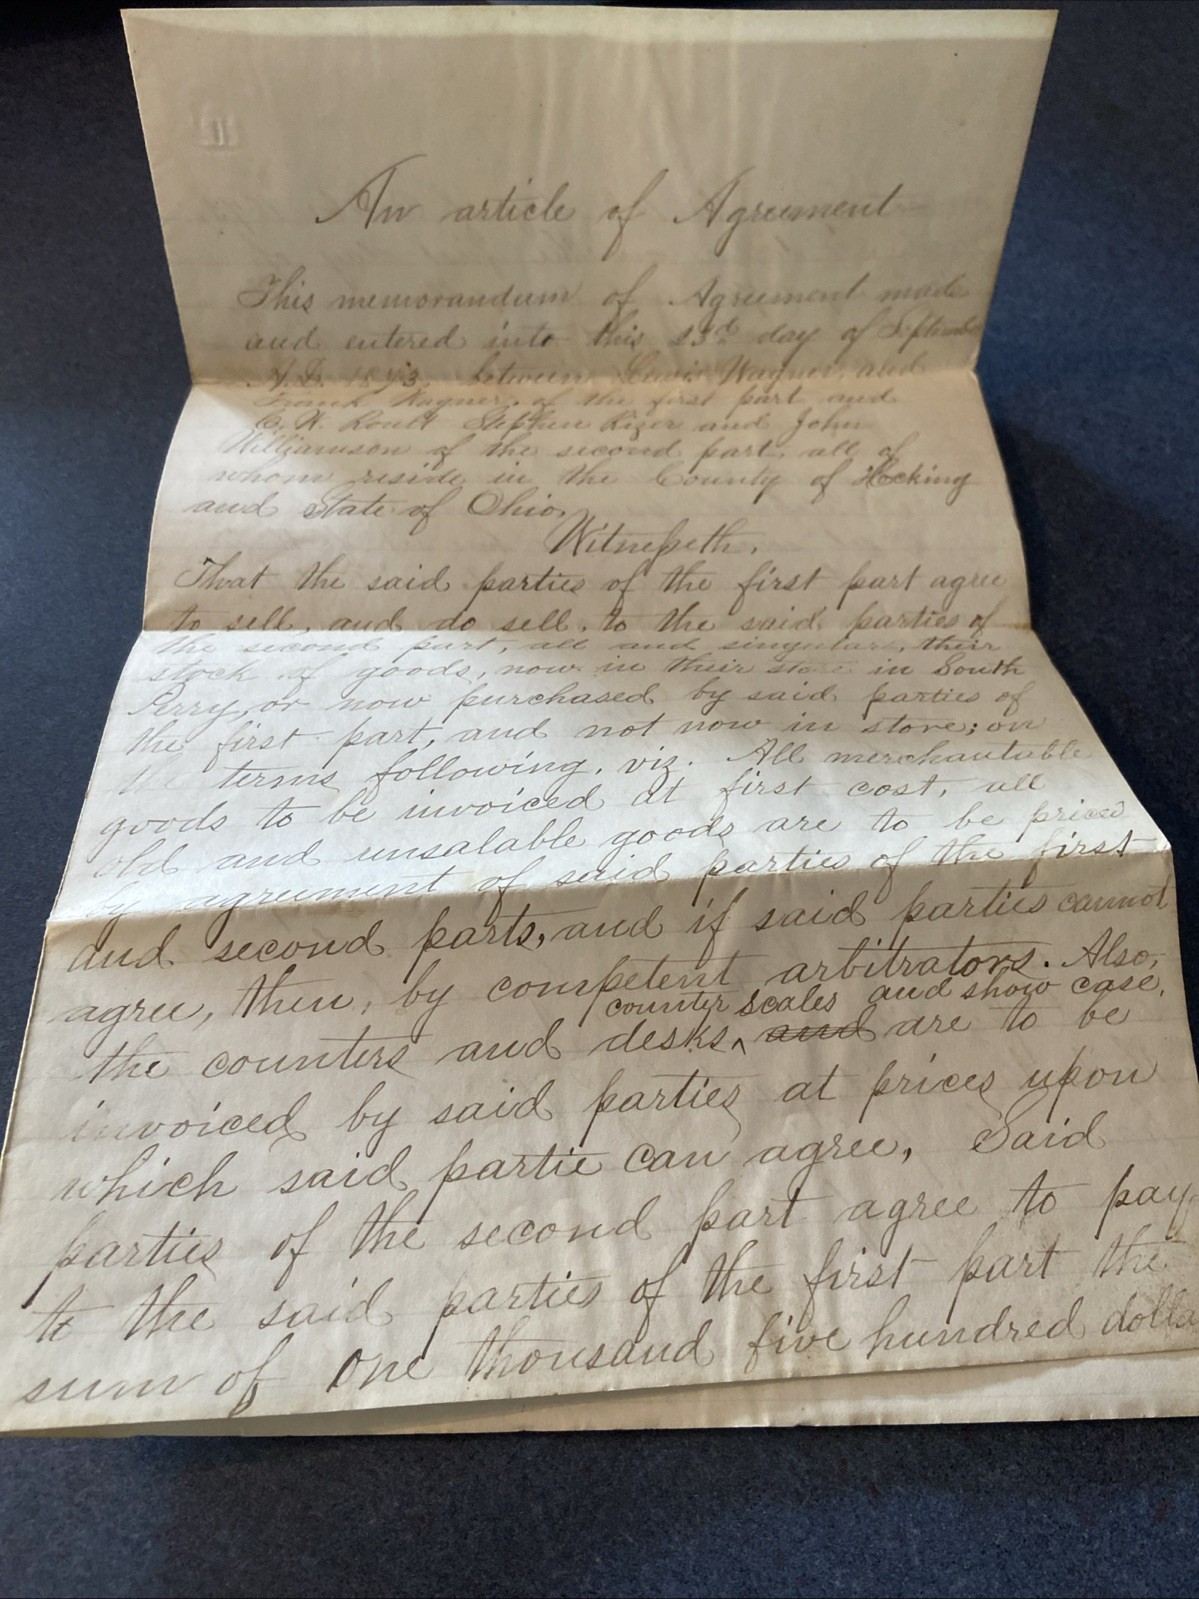 An article of Agreement
This memorandum of Agreement made
and entered into this 23d day of September
A.D. 1873, between Lewis Wagner, and
Frank Wagner, of the first part and
Stephen Kizer and John
Williamson of the second part, all of
whom reside in the County of Hocking
and State of Ohio,
Witnesseth,
That the said parties of the first part agree
to sell, and do sell, to the said parties of
the second part, all and singular, their
stock of goods, now in their store in South
Perry, or now purchased by said parties of
the first part, and not now in store; on
the terms following, viz. All merchantable
goods to be invoiced at first cost, all
old and unsalable goods are to be priced
by agreement of said parties of the first
and second parts, and if said parties cannot
agree, then, by competent arbitrators. Also,
counter scales and show case,
the counters and desks ‸ and are to be
invoiced by said parties at prices upon
which said partie can agree, Said
parties of the second part agree to pay
to the said parties of the first part the
sum of One thousand five hundred dolla